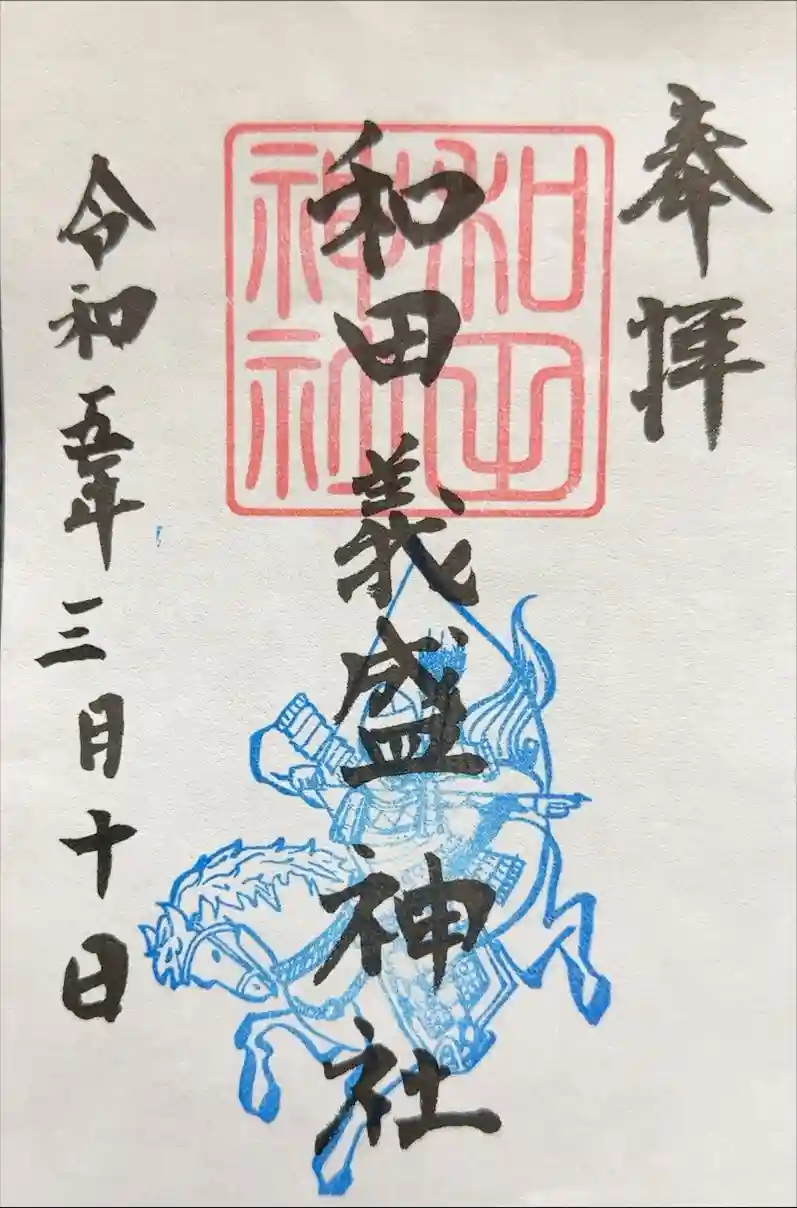 奉拝
和田
神社
和田義盛神社
令和五年三月十日